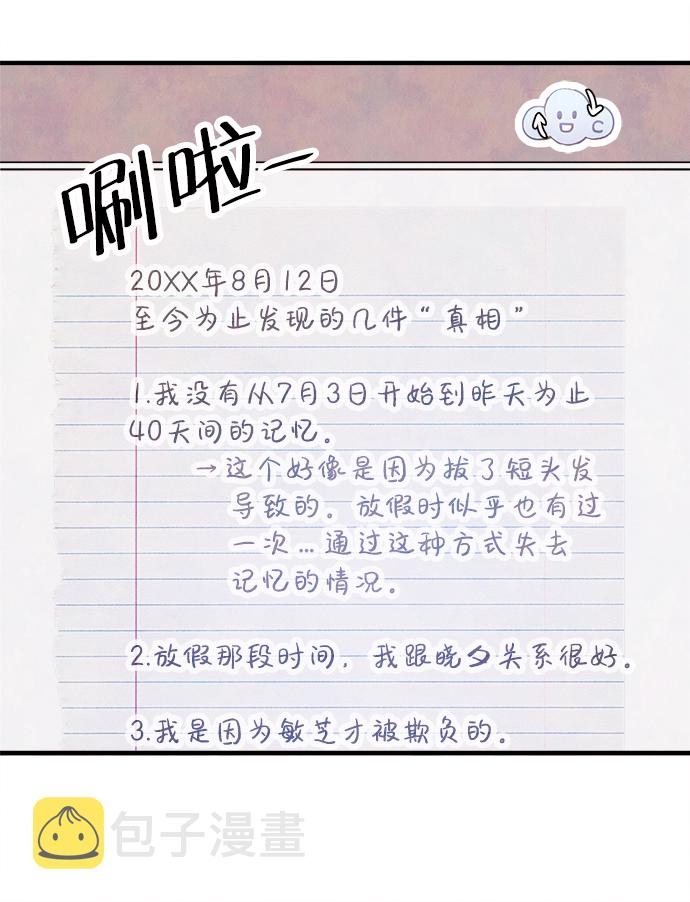 C
唰啦—
20XX年8月12日
至今为止发现的几件“真相”
1.我没有从7月3日开始到昨天为止
40天间的记忆。
→这个好像是因为拔了短头发
导致的。放假时似乎也有过
一次…通过这种方式失去
记忆的情况。
2.放假那段时间，我跟晓夕关系很好。
3.我是因为敏芝才被欺负的。
包子漫畫